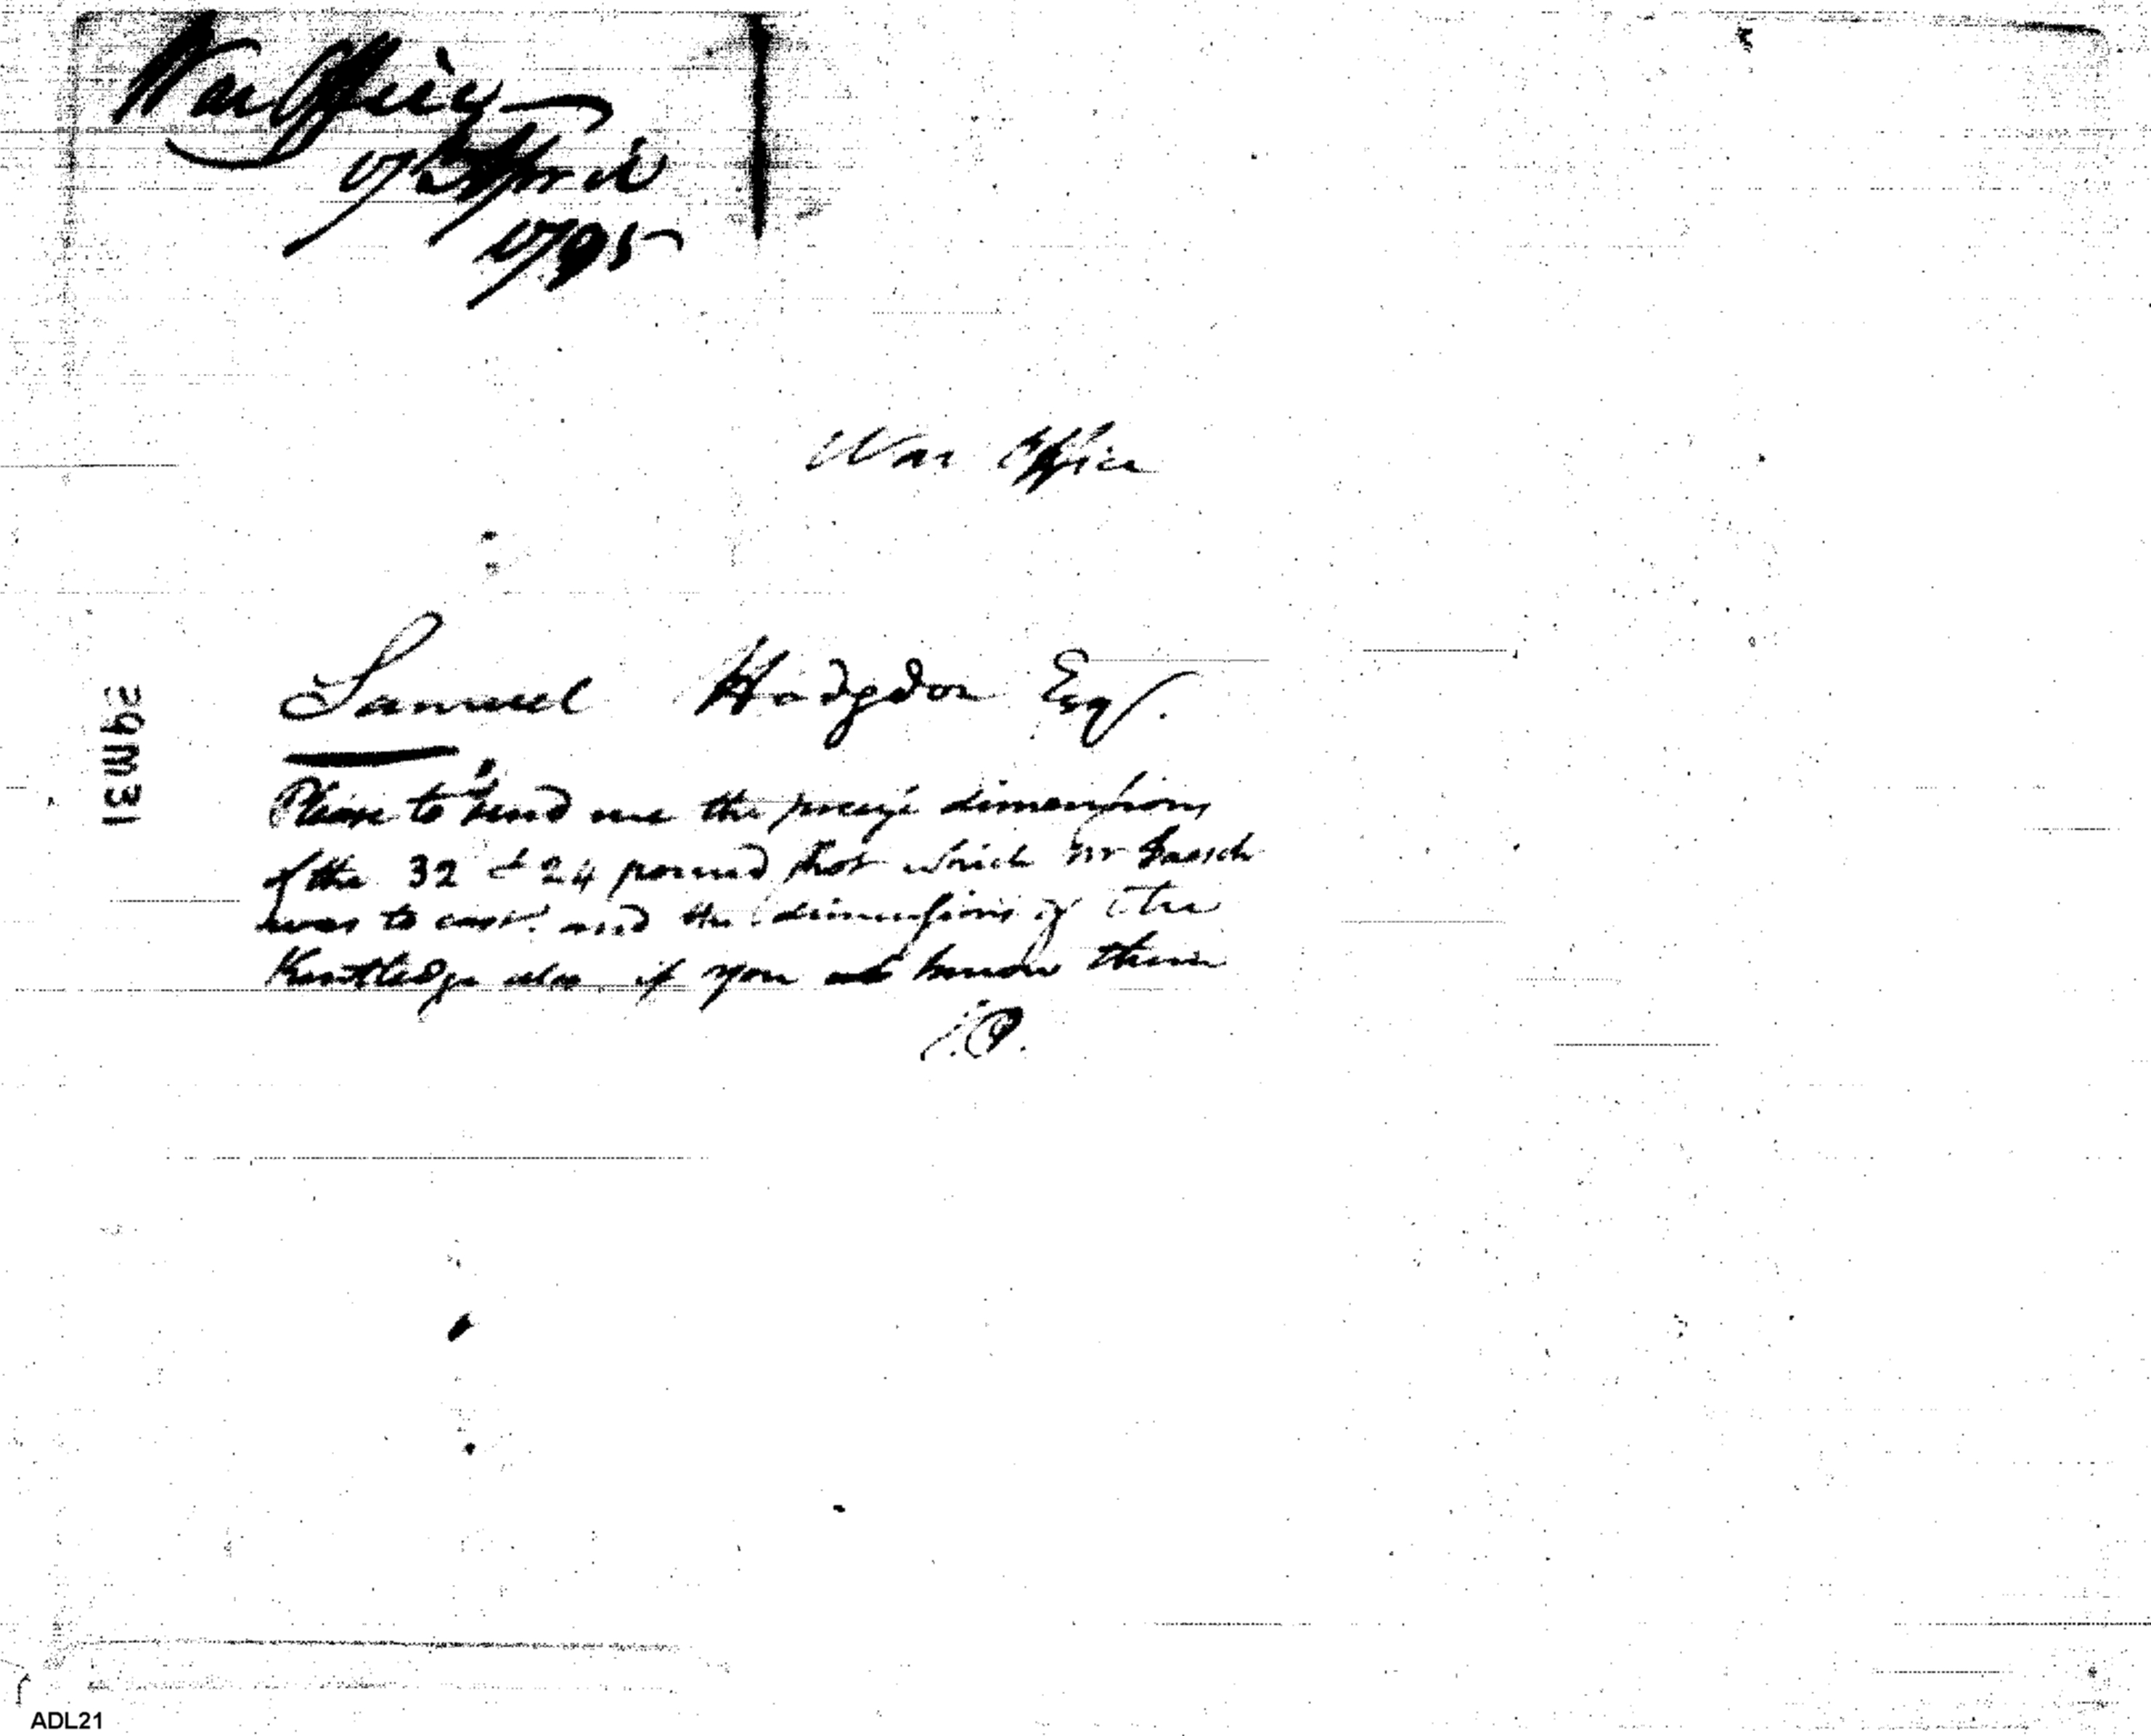 War Office
17 April
1795
War Office
Samuel Hodgdon Esqr.
Please to send me the precise dimensions
of the 32 & 24 pound shot which Mr
was to cast and the dimensions of the
Kentledge also if you know them
T.P.
ADL21